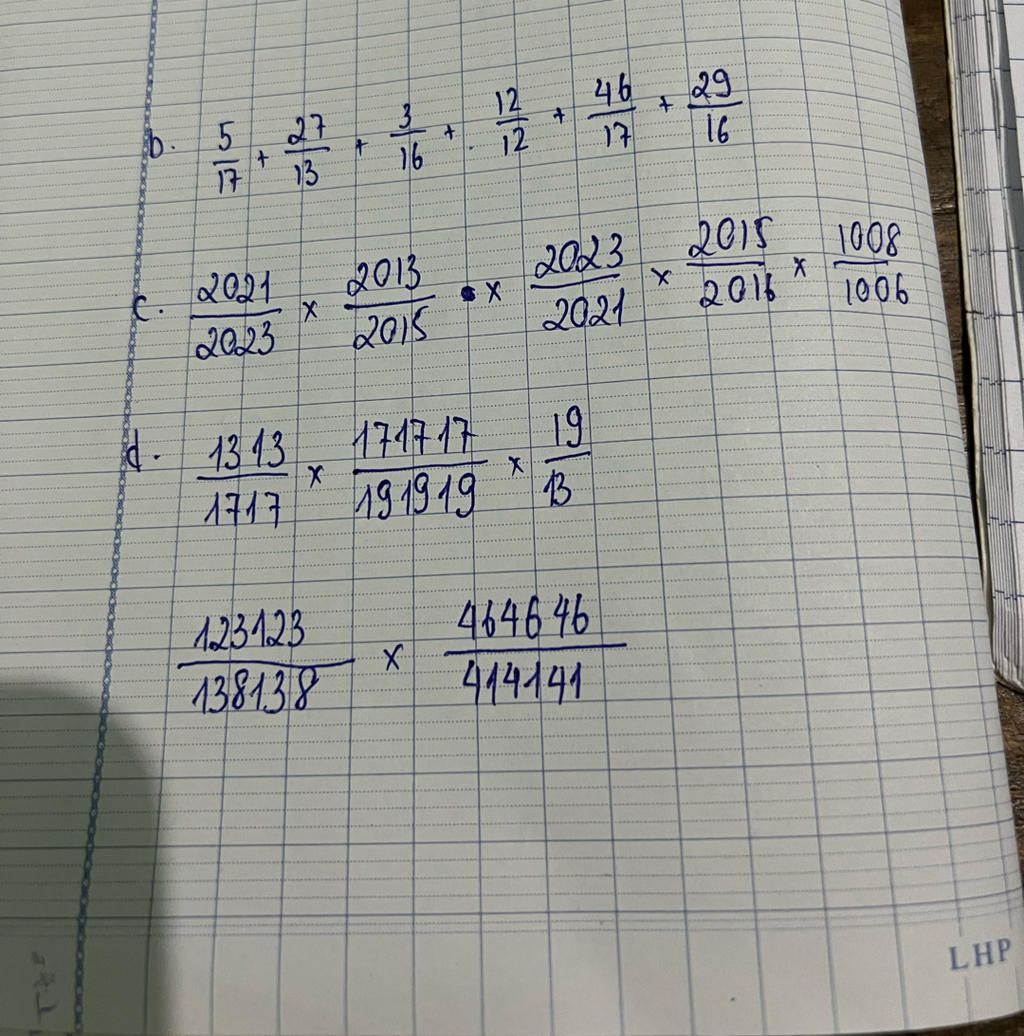 b. 5/17 + 27/13 + 3/16 + . 12/12 + 46/17 + 29/16
c. 2021/2023 x 2013/2015 x 2023/2021 x 2015/2016 x 1008/1006
d. 1313/1717 x 171717/191919 x 19/13
123123/138138 x 464646/414141
LHP